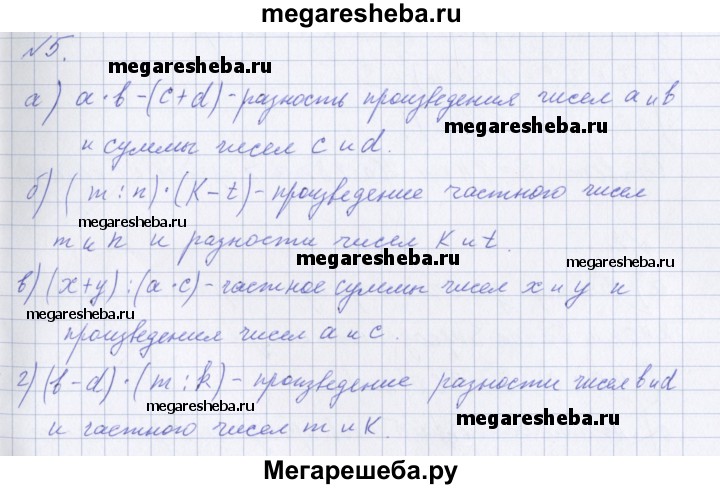 megaresheba.ru
№5.
megaresheba.ru
а) a · b - (c + d) - разность произведения чисел a и b
megaresheba.ru
и суммы чисел c и d.
б) (m : n) · (K - t) - произведение частного чисел
megaresheba.ru
m и n и разности чисел K и t.
megaresheba.ru
megaresheba.ru
в) (x + y) : (a · c) - частное суммы чисел x и y и
megaresheba.ru
произведения чисел a и c.
megaresheba.ru
г) (b - d) · (m : k) - произведение разности чисел b и d
megaresheba.ru
megaresheba.ru
и частного чисел m и K.
Мегарешеба.ру